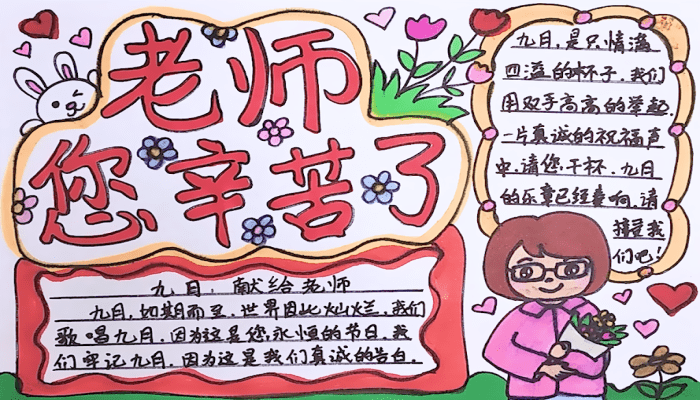 老师
您辛苦了
九月，献给老师
九月，如期而至，世界因此灿烂，我们
歌唱九月，因为这是您永恒的节日，我
们牢记九月，因为这是我们真诚的告白。
九月，是只情满
四溢的杯子，我们
用双手高高的举起，
一片真诚的祝福声
中，请您干杯，九月
的乐章已经奏响，请
接受我
们吧！